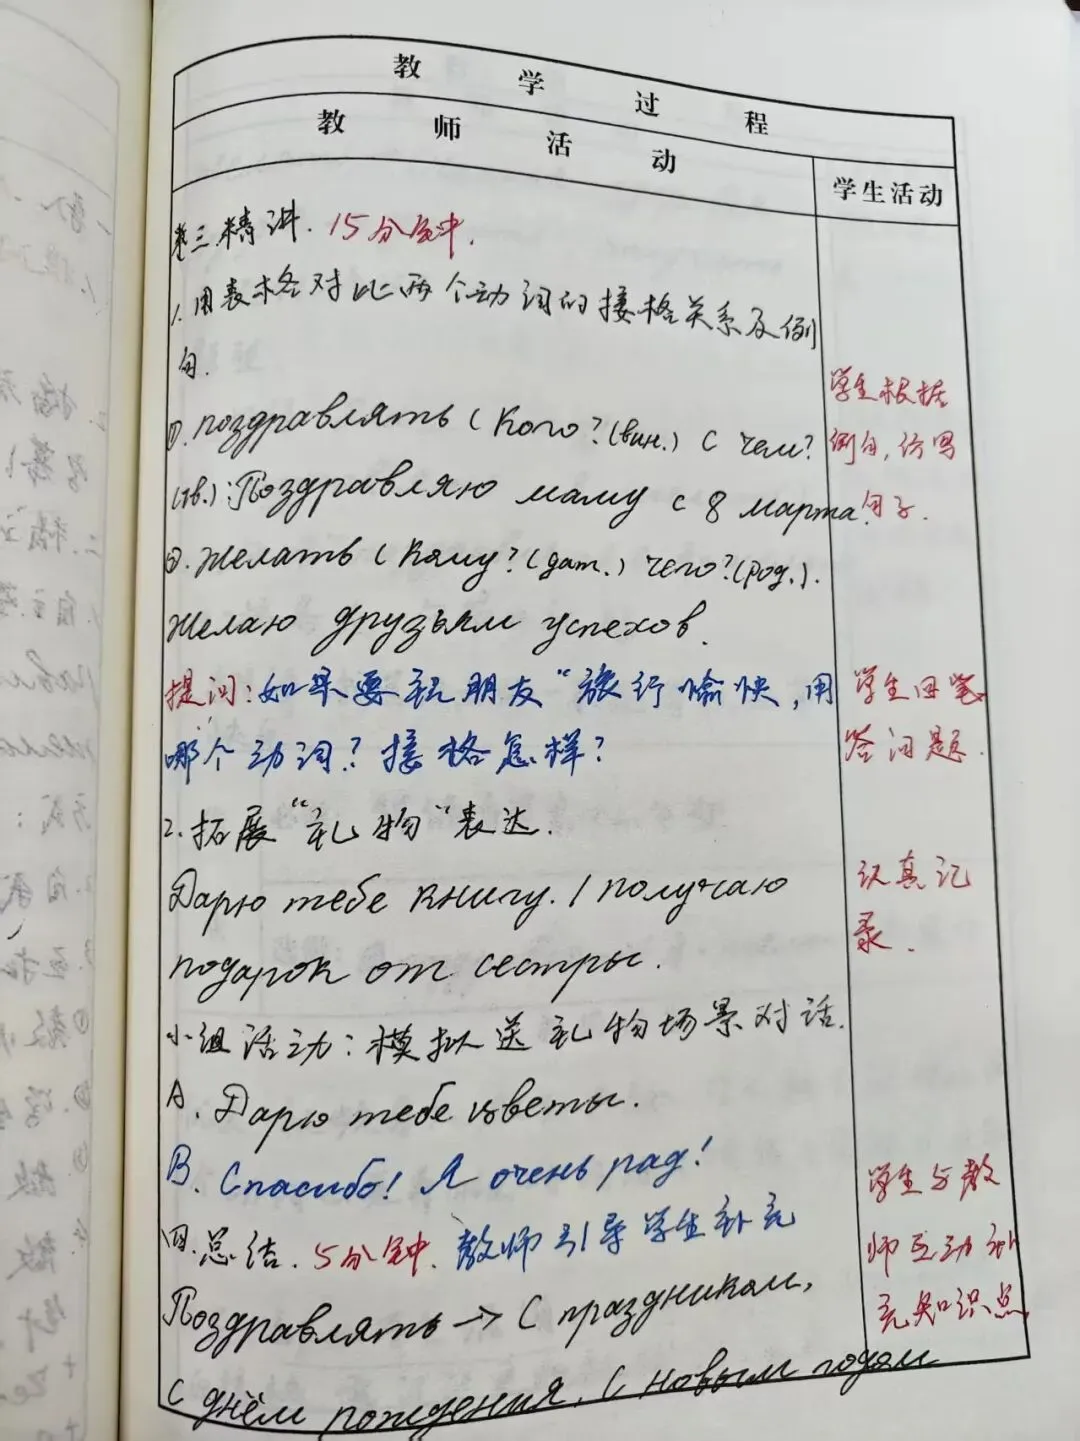 教学过程
教师活动
学生活动
三.精讲. 15分钟.
1.用表格对比两个动词的接格关系及例
句.
①.поздравлять (кого?(вин.) с чем?
(тв.):Поздравляю маму с 8 марта.
学生根据
例句,仿写
句子.
②.желать (кому?(дат.) чего?(род.).
желаю друзьям успехов.
提问:如果要祝朋友“旅行愉快,用
哪个动词?接格怎样?
学生回
答问题.
2.拓展“礼物“表达.
Дарю тебе книгу. / получаю
подарок от сестры.
认真记
录.
小组活动:模拟送礼物场景对话.
A. Дарю тебе цветы.
B. Спасибо! Я очень рад!
四.总结. 5分钟. 教师引导学生补充
Поздравлять → С праздником,
с днём рождения, с новым годом
学生与教
师互动补
充知识点